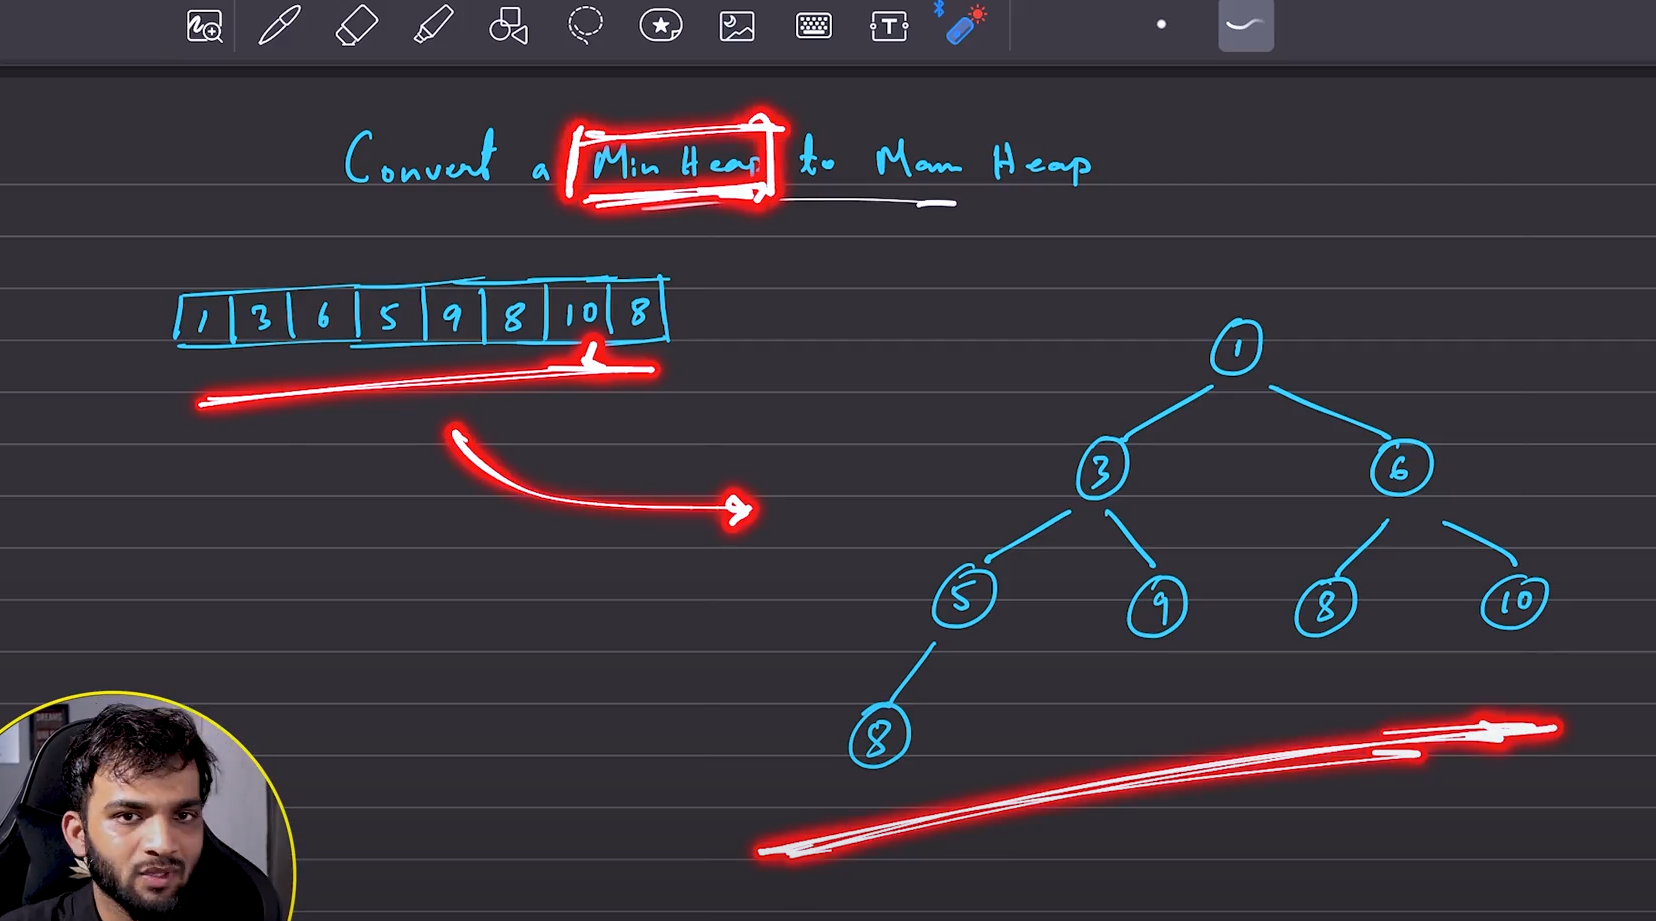 Convert a Min Heap to Max Heap
1 3 6 5 9 8 10 8
1
3 6
5 9 8 10
8